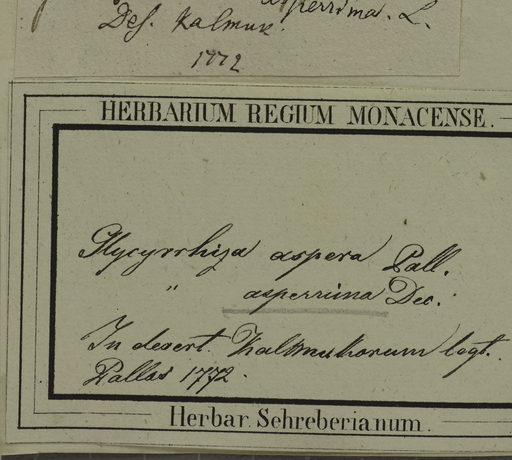 asperrima. L.
Des. Kalmuk.
1772
HERBARIUM REGIUM MONACENSE.
Glycyrrhiza aspera Pall.
" asperrima Dec.
In desert. Kalmukorum legt.
Pallas 1772.
Herbar. Schreberianum.